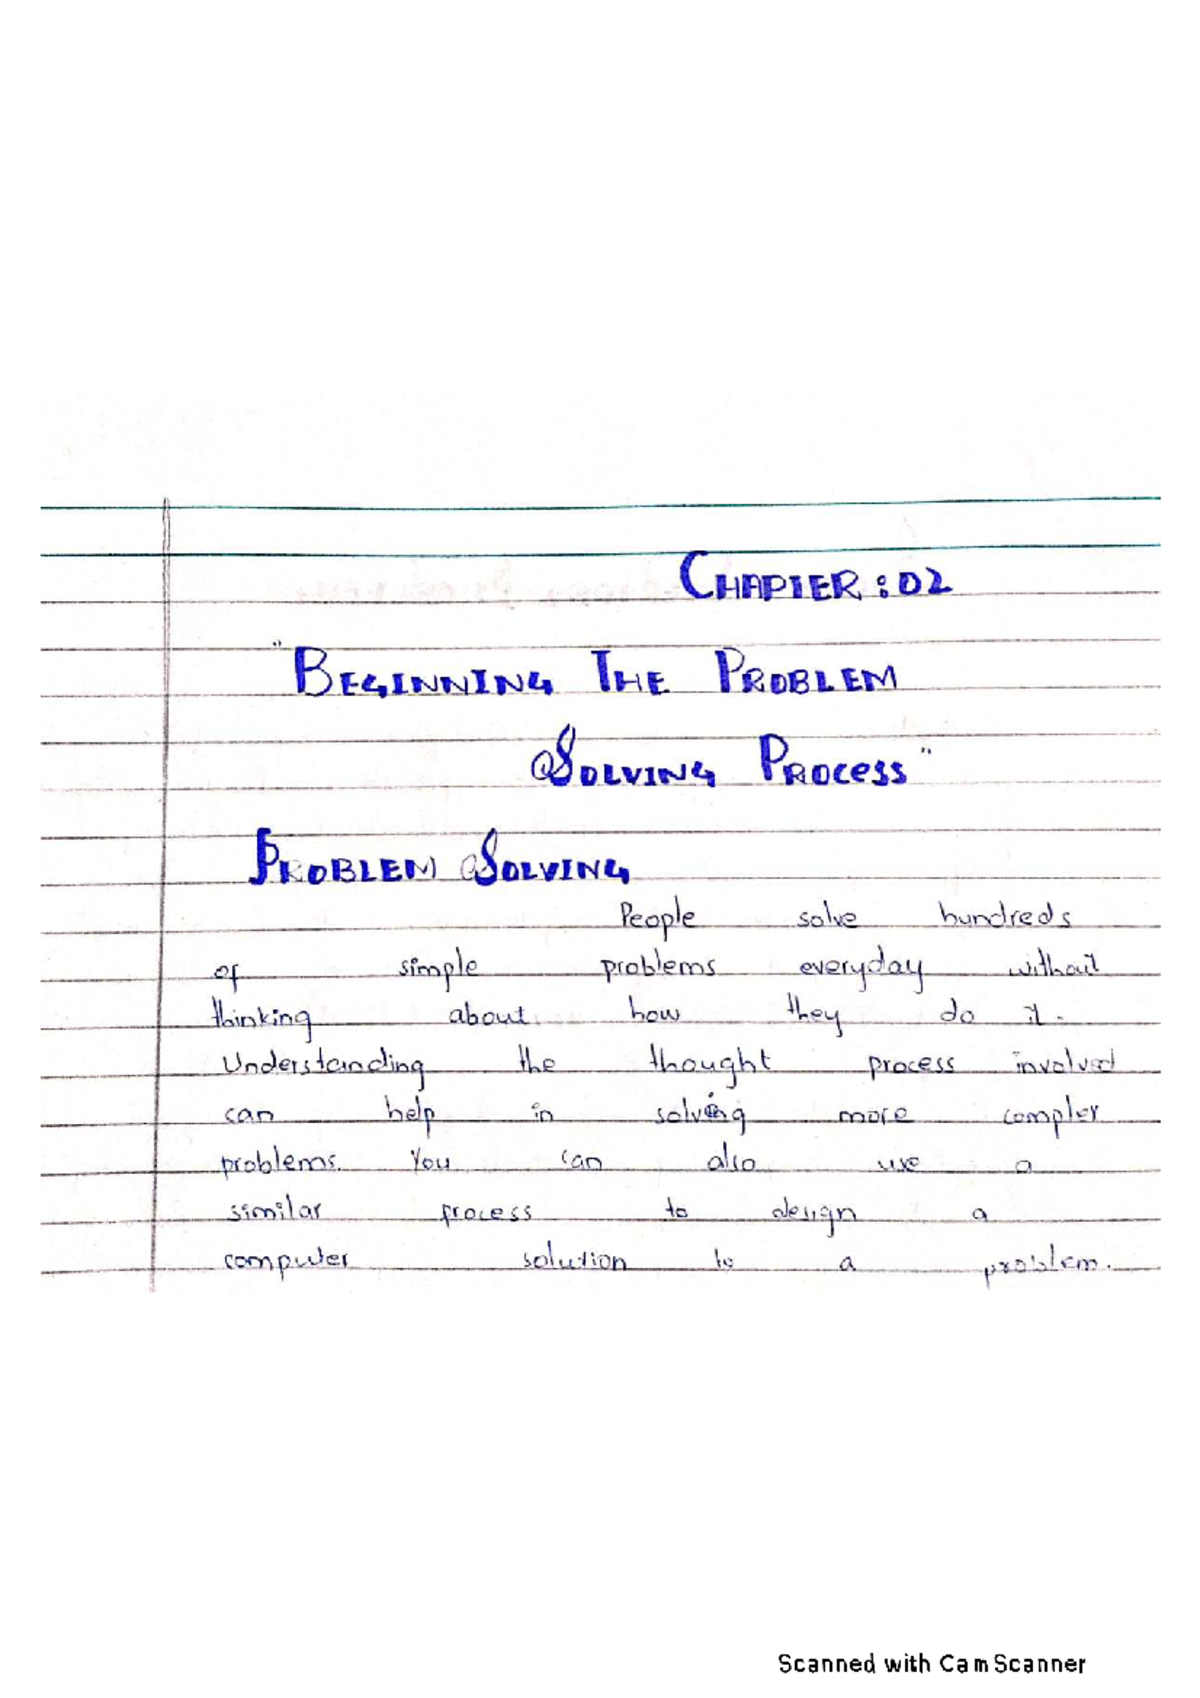 CHAPTER : 02
"BEGINNING THE PROBLEM
SOLVING PROCESS"
PROBLEM SOLVING
People solve hundreds
of simple problems everyday without
thinking about how they do it.
Understanding the thought process involved
can help in solving more compler
problems. You can also use a
similar process to design a
computer solution to a problem.
Scanned with CamScanner